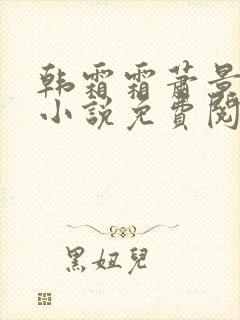 韩霜霜萧景
小说免费阅
黑妞儿